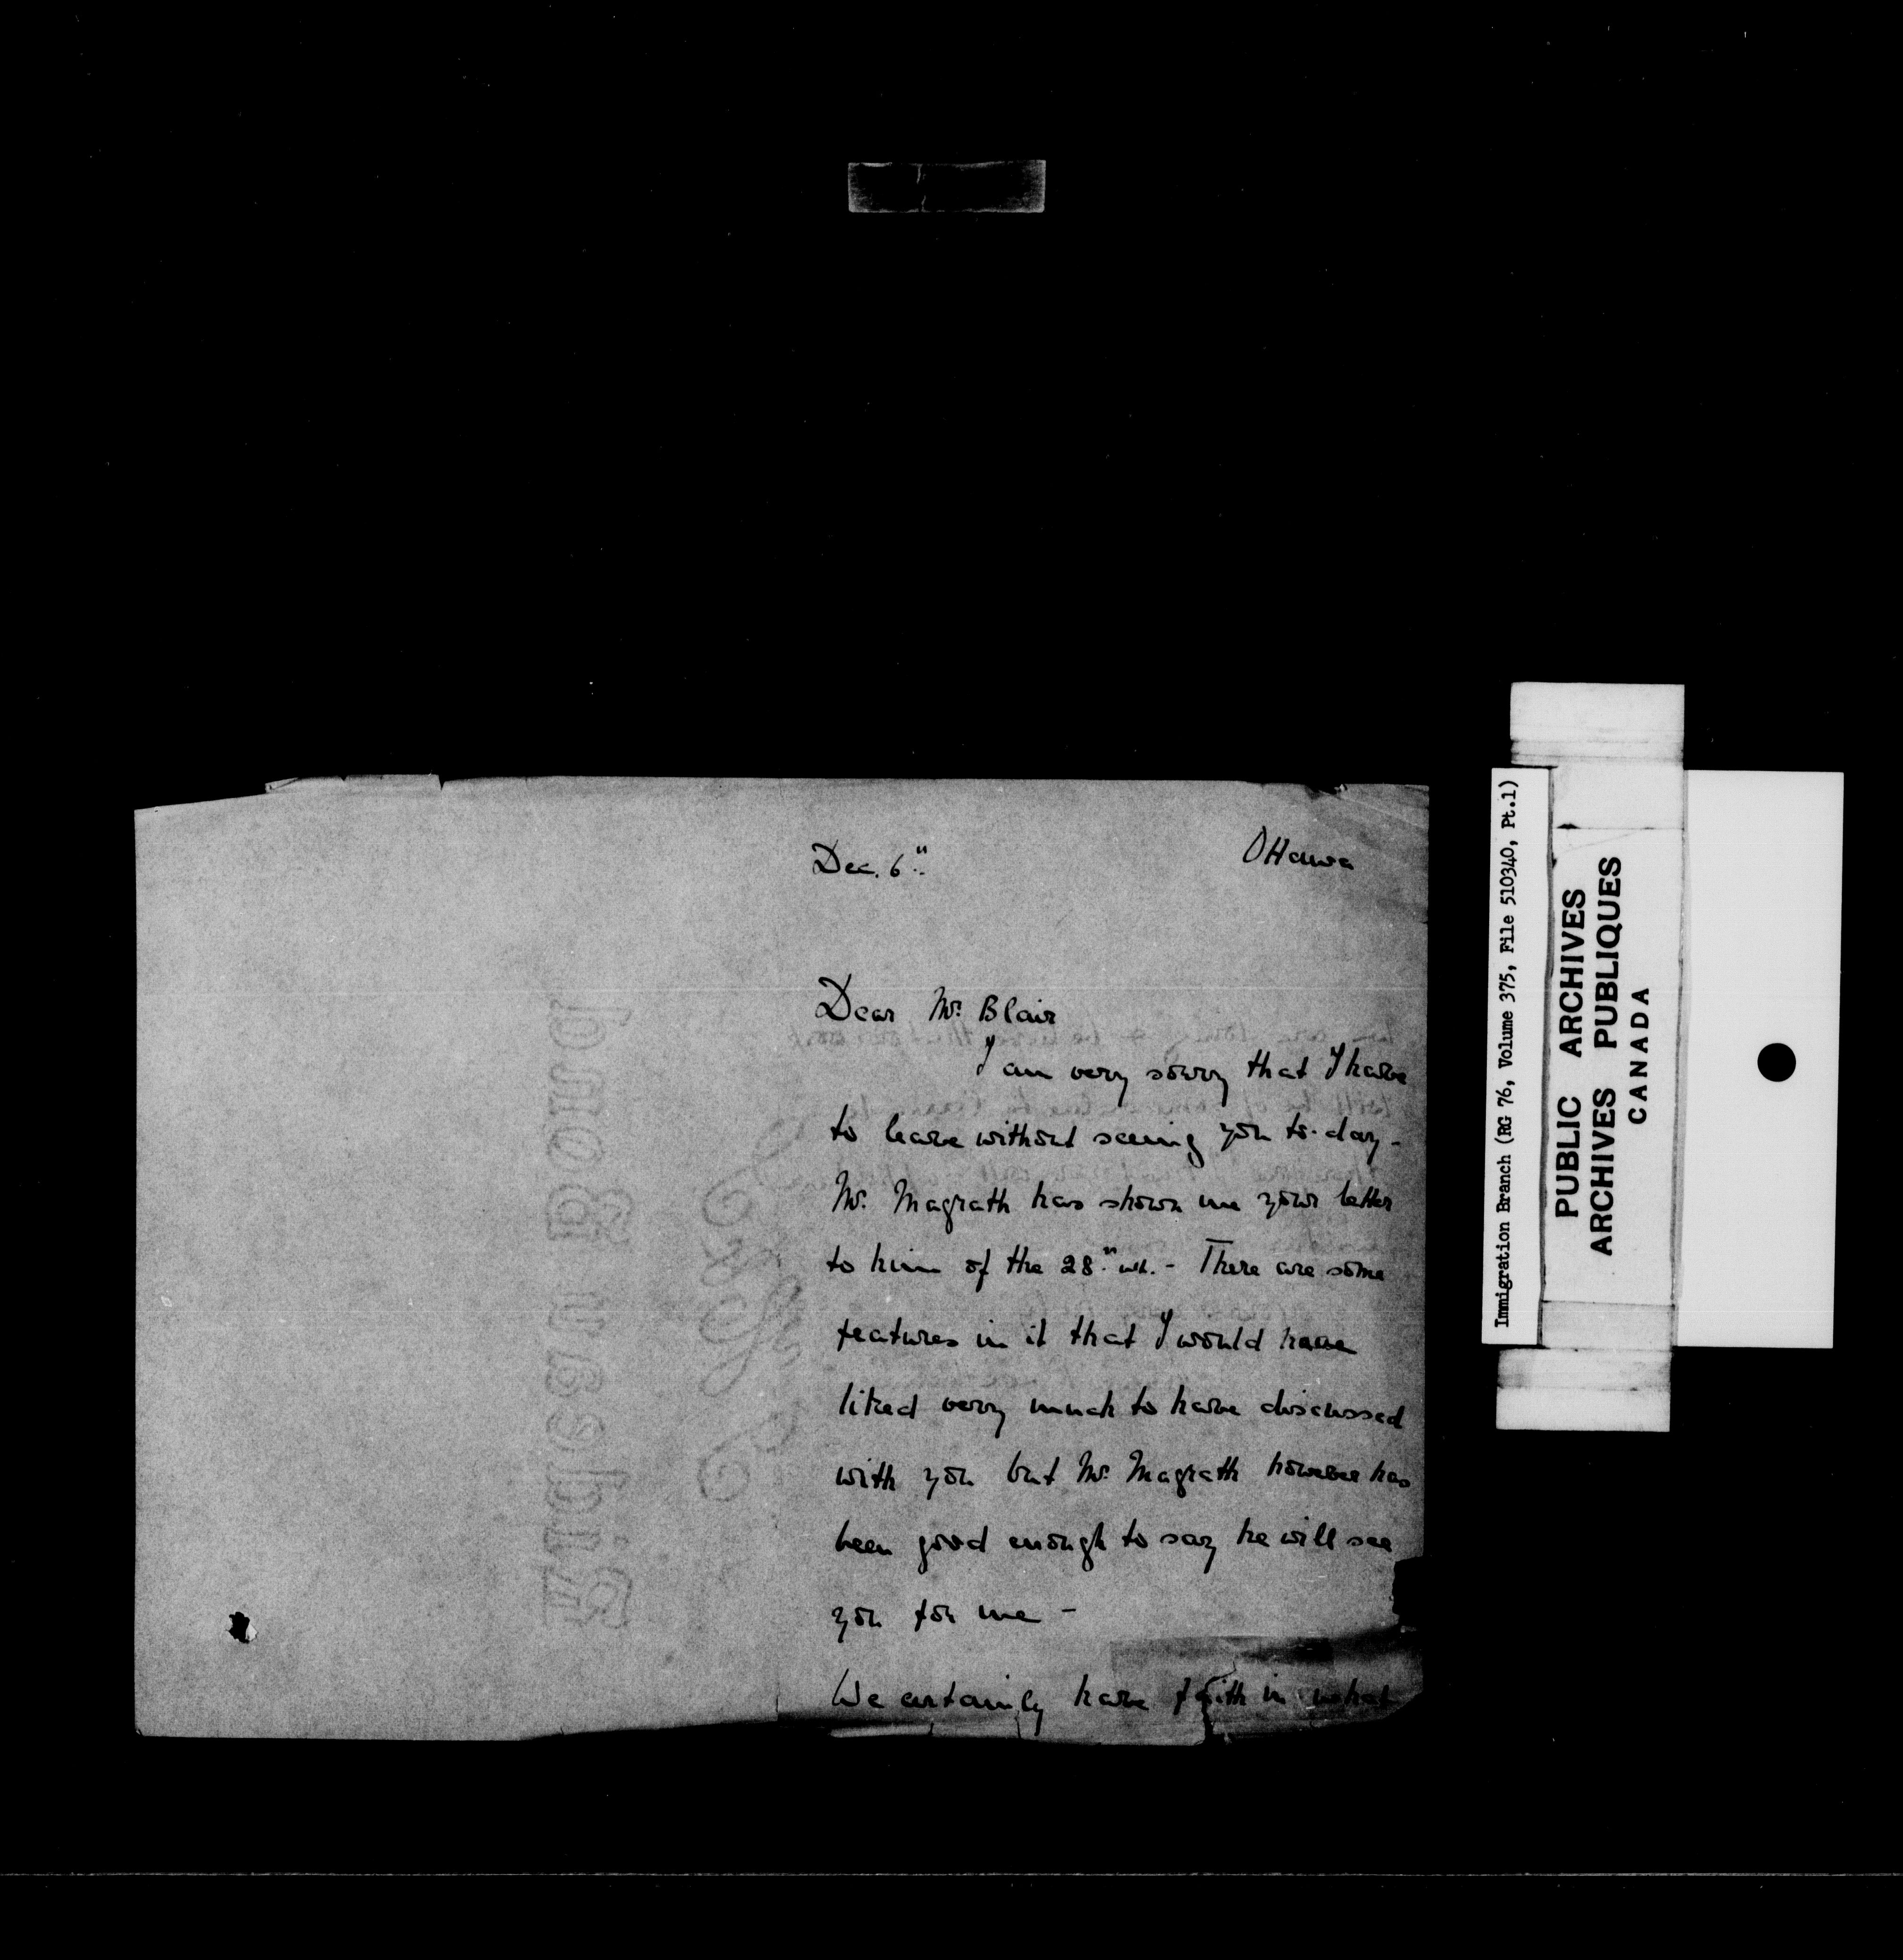 Dec. 6" Ottawa
Dear Mr. Blair
I am very sorry that I have
to leave without seeing you to-day -
Mr. Magrath has shown me your letter
to him of the 28" ult. - There are some
features in it that I would have
liked very much to have discussed
with you but Mr. Magrath however has
been good enough to say he will see
you for me -
We certainly have faith in what
Rideau Bond
Immigration Branch (RG 76, Volume 375, File 510340, Pt.1)
PUBLIC ARCHIVES
ARCHIVES PUBLIQUES
CANADA